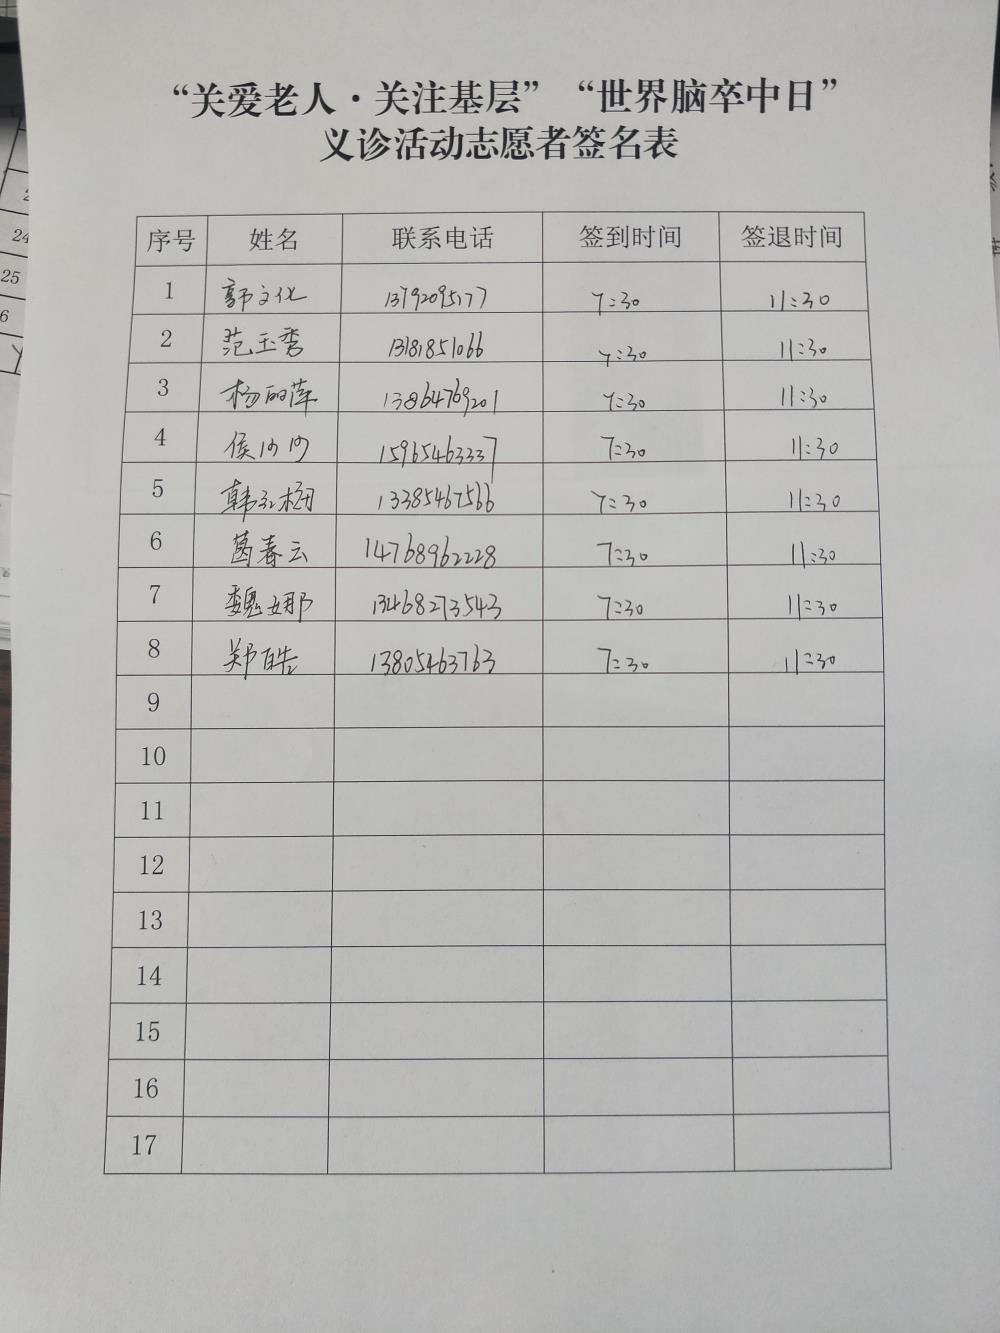 “关爱老人·关注基层”“世界脑卒中日”
义诊活动志愿者签名表
序号 姓名 联系电话 签到时间 签退时间
1 郭文化 13792095177 7:30 11:30
2 范玉秀 13181851066 7:30 11:30
3 杨丽萍 13864769201 7:30 11:30
4 侯沙沙 15965463337 7:30 11:30
5 韩红梅 13385467566 7:30 11:30
6 葛春云 14768962228 7:30 11:30
7 魏娜 13468273543 7:30 11:30
8 郑皓 13805463763 7:30 11:30
9
10
11
12
13
14
15
16
17
24
25
6